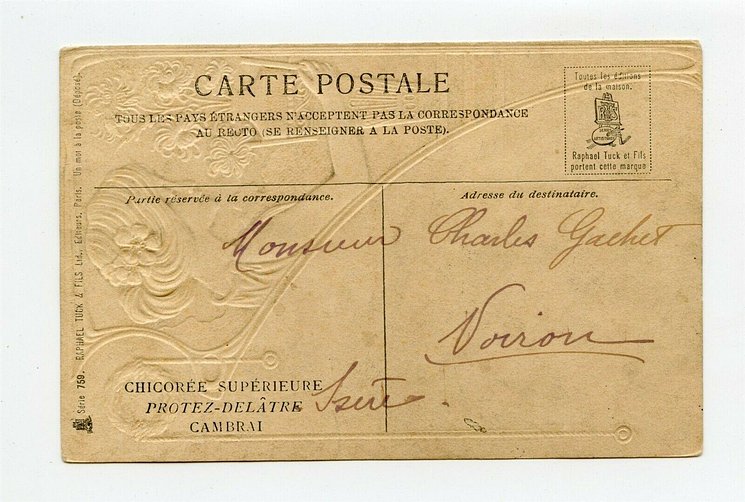 CARTE POSTALE
TOUS LES PAYS ÉTRANGERS N'ACCEPTENT PAS LA CORRESPONDANCE
AU RECTO (SE RENSEIGNER A LA POSTE).
Toutes les éditions
de la maison.
Raphael Tuck et Fils
portent cette marque
Partie réservée à la correspondance.
Adresse du destinataire.
Monsieur Charles Gachet
Voiron
Isère
CHICORÉE SUPÉRIEURE
PROTEZ-DELÂTRE
CAMBRAI
Série 759. RAPHAEL TUCK & FILS Ltd., Éditeurs, Paris. Un mot à la poste (Déposé).